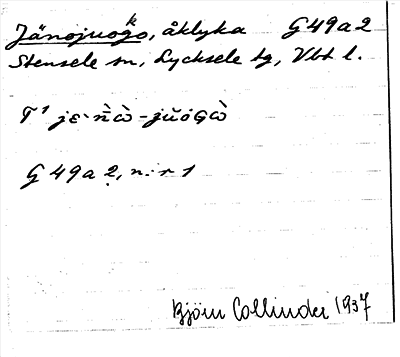 Jänojuogo, åklyka G49a2
k
Stensele sn, Lycksele tg, Vbt l.
T¹ jɛ·n̄̀ὼ-jŭȯGὼ
G 49a 2, n:r 1
Björn Collinder 1937